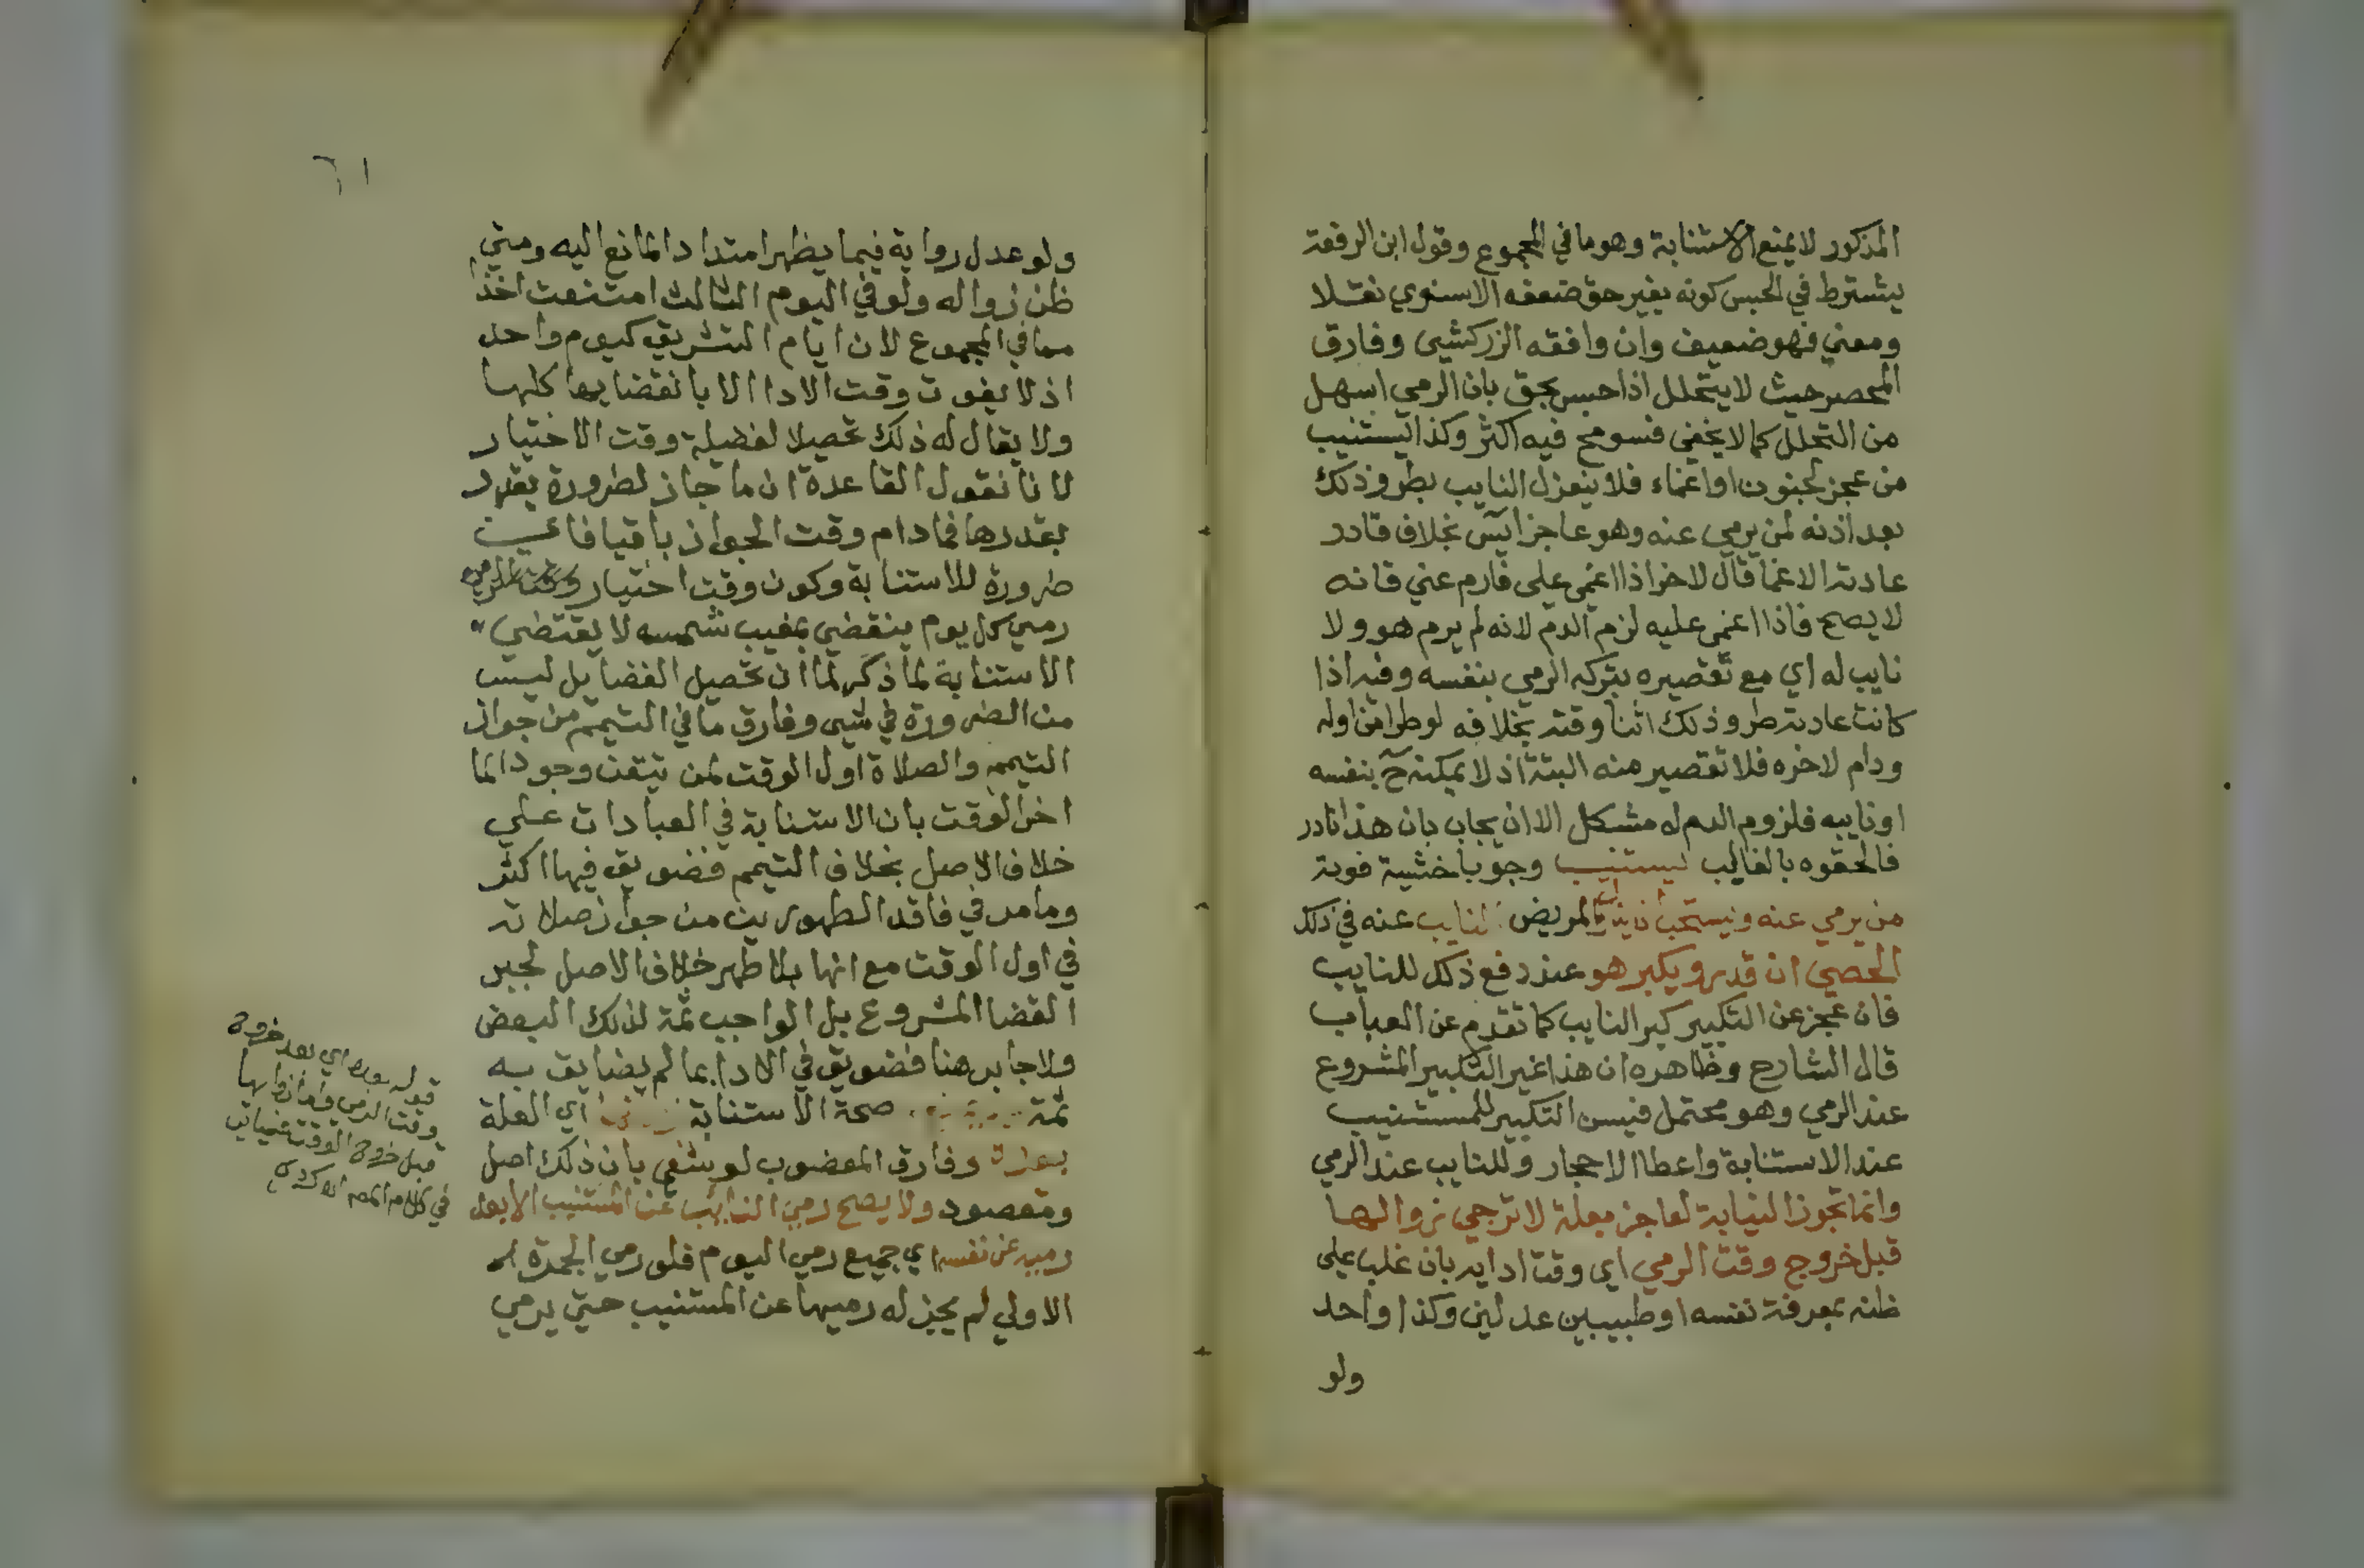 المذكور لا يمنع الاستنابة وهو ما في المجموع وقول ابن الرفعة
يشترط في الحبس كونه بغير حق ضعفه الاسنوي نقلا
ومعني فهو ضعيف وان وافقه الزركشي وفارق
المحصر حيث لا يتحلل اذا حبس بحق بان الرمي اسهل
من التحلل كما لا يخفي فسومح فيه اكثر وكذا يستنيب
من عجز لجنون او اغماء فلا ينعزل النايب بطرو ذلك
بعد اذنه لمن يرمي عنه وهو عاجز ايس بخلاف قادر
عادته الاغما قال لاخر اذا اغمي علي فارم عني فانه
لا يصح فاذا اغمي عليه لزم الدم لانه لم يرم هو ولا
نايب له اي مع تقصيره بتركه الرمي بنفسه وفيه اذا
كانت عادته طرو ذلك اثنا وقته بخلافه لو طرا من اوله
ودام لاخره فلا تقصير منه البتة اذ لا يمكنه ح بنفسه
او نايبه فلزوم الدم له مشكل الا ان يجاب بان هذا نادر
فالحقوه بالغالب يستنيب وجوبا خشية فوته
من يرمي عنه ويستحب ان المريض النايب عنه في ذلك
الحصي ان قدر ويكبر هو عند دفع ذلك للنايب
فان عجز عن التكبير كبر النايب كما تقدم عن العباب
قال الشارح وظاهره ان هذا غير التكبير المشروع
عند الرمي وهو محتمل فيسن التكبير للمستنيب
عند الاستنابة واعطا الاحجار وللنايب عند الرمي
وانما تجوز النيابة لعاجز بعلة لا ترجي زوالها
قبل خروج وقت الرمي اي وقت ادايه بان غلب علي
ظنه بمعرفة نفسه او طبيبين عدلين وكذا واحد
ولو
٦١
ولو عدل رواية فيما يظهر امتداد المانع اليه ومتي
ظن زواله ولو في اليوم الثالث امتنعت اخذا
مما في المجموع لان ايام التشريق كيوم واحد
اذ لا يفوت وقت الادا الا بانقضايها كلها
ولا يقال له ذلك تحصيلا لفضيلة وقت الاختيار
لانا نقول القاعدة ان ما جاز لضرورة يقدر
بقدرها فما دام وقت الجواز باقيا فاي
ضرورة للاستنابة وكون وقت اختيار
رمي كل يوم ينقضي بمغيب شمسه لا يقتضي
الاستنابة لما ذكر لما ان تحصيل الفضايل ليس
من الضرورة في شي وفارق ما في التيمم من جواز
التيمم والصلاة اول الوقت لمن تيقن وجود الما
اخر الوقت بان الاستنابة في العبادات علي
خلاف الاصل بخلاف التيمم فضويق فيها اكثر
وما مر في فاقد الطهورين من جواز صلاته
في اول الوقت مع انها بلا طهر خلاف الاصل لجبر
القضا المشروع بل الواجب ثمة لذلك البعض
ولا جابر هنا فضويق في الادا بما لم يضايق به
ثمة صحة الاستنابة اي العلة
بعده وفارق المعضوب لو شفي بان ذلك اصل
ومقصود ولا يصح رمي النائب عن المستنيب الا بعد
رميه عن نفسه اي جميع رمي اليوم فلو رمي الجمرة
الاولي لم يجز له رميها عن المستنيب حتي يرمي
قوله بعده اي بعد خروج
وقت الرمي
قبل خروج الوقت
في كلام المص